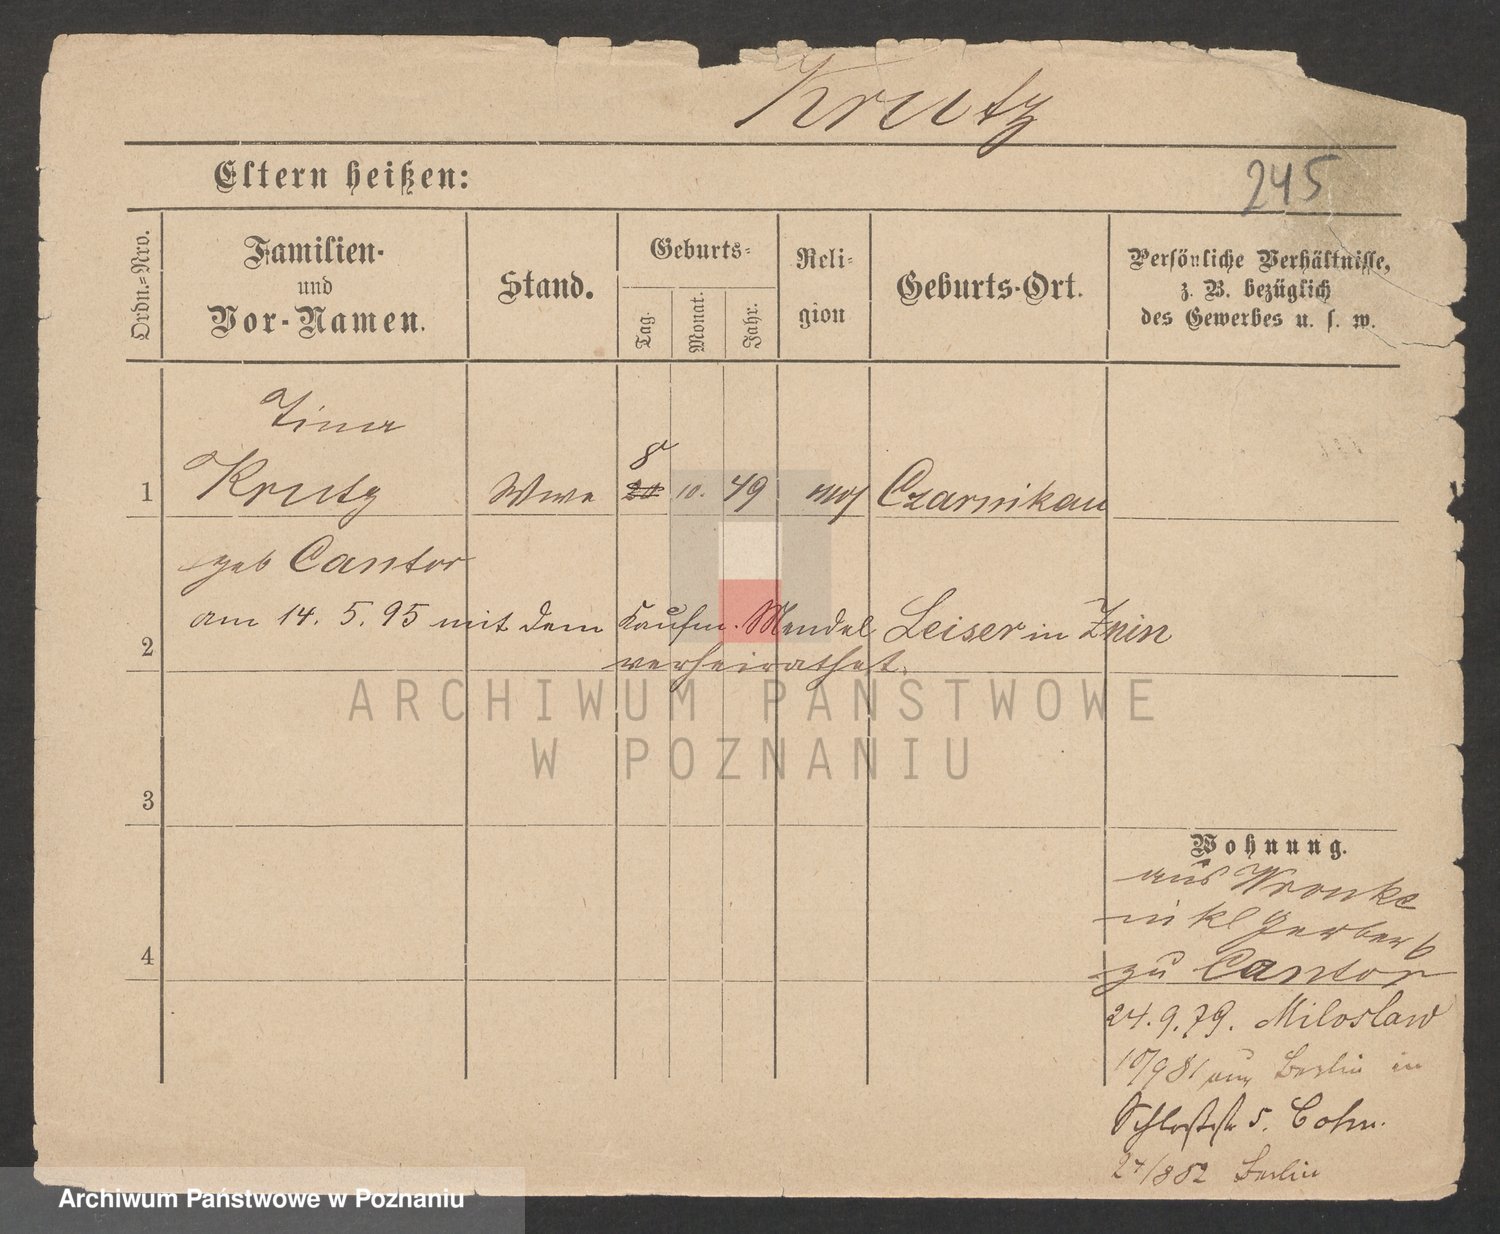 Krutz
Eltern heißen:
245
Ordn.-Nro.
Familien-
und
Vor-Namen.
Stand.
Geburts-
Tag.
Monat.
Jahr.
Reli-
gion
Geburts-Ort.
Persönliche Verhältnisse,
z. B. bezüglich
des Gewerbes u. s. w.
1
Krutz
Wwe
8
20
10.
49
mos
Czarnikau
geb Cantor
am 14. 5. 95 mit dem Kaufm. Mendel Leiser in Znin
2
verheirathet.
ARCHIWUM PAŃSTWOWE
W POZNANIU
3
Wohnung.
aus Wronke
in kl Gerber 6
4
zu Cantor
24. 9. 79. Miloslaw
10/9 81 aus Berlin in
Schlosstr 5. Cohn.
27/8 82 Berlin
Archiwum Państwowe w Poznaniu